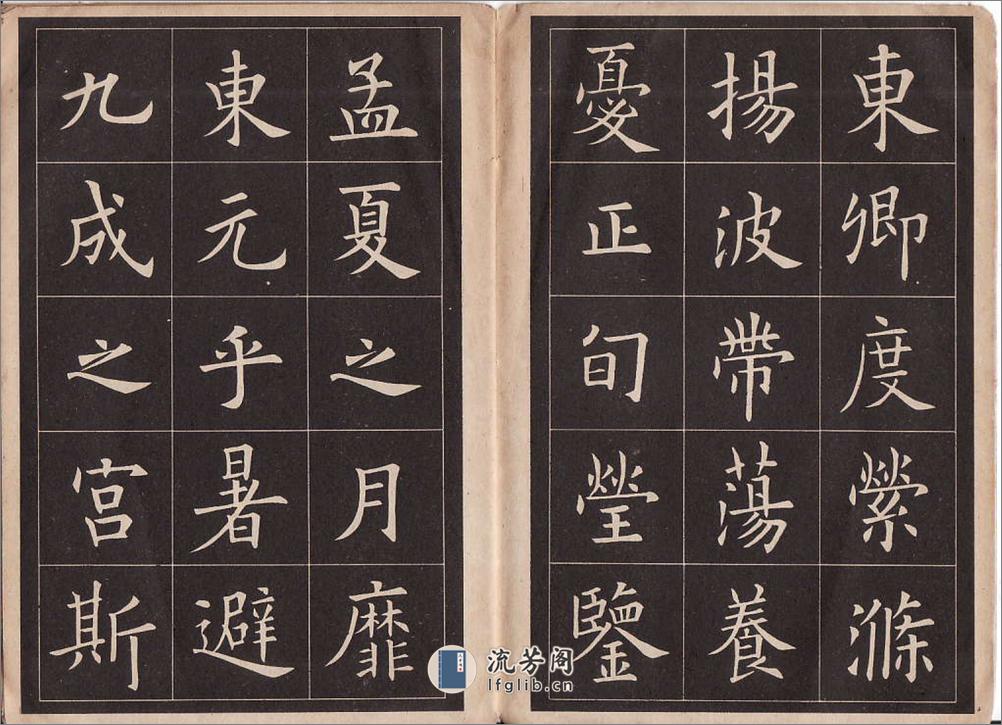 東卿度縈滌
揚波帶蕩養
憂正旬瑩鑒
孟夏之月靡
東元乎暑避
九成之宮斯
流芳阁
lfglib.cn